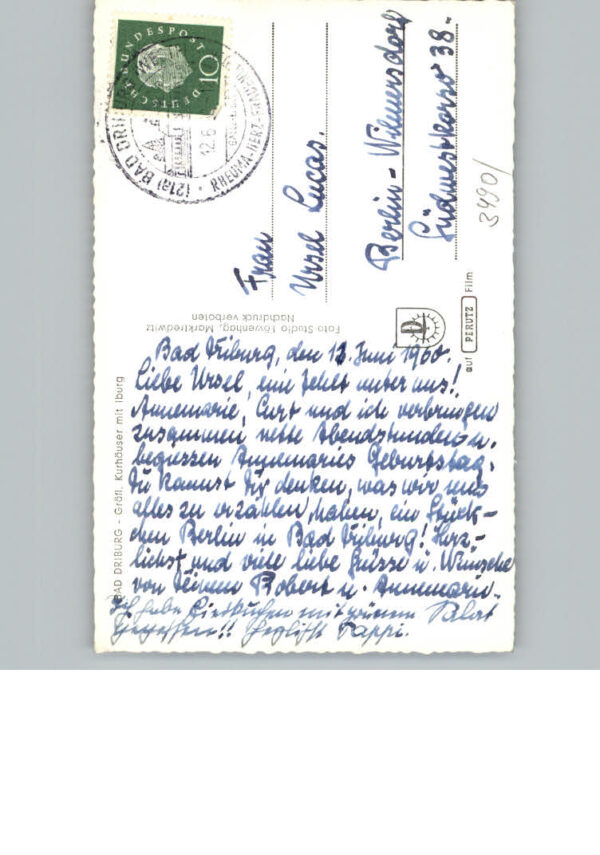 DEUTSCHE BUNDESPOST
10
(21a) BAD DRIBURG
12.6.
RHEUMA-HERZ-
Frau
Ursel Lucas.
Berlin-Wilmersdorf
Südwestkorso 38-
3490/
Foto Studio Löwenhag, Marktredwitz
Nachdruck verboten
D
auf PERUTZ Film
BAD DRIBURG - Gräfl. Kurhäuser mit Iburg
Bad Driburg, den 12. Juni 1960.
Liebe Ursel, eine fehlt unter uns!
Annemarie, Curt und ich verbringen
zusammen nette Abendstunden u.
begossen Annemaries Geburtstag.
Du kannst Dir denken, was wir uns
alles zu erzählen haben, ein Stück-
chen Berlin in Bad Driburg! Herz-
lichst und viele liebe Grüsse u. Wünsche
von Deinem Robert u. Annemarie.
Ich habe mit Salat
gegessen!!